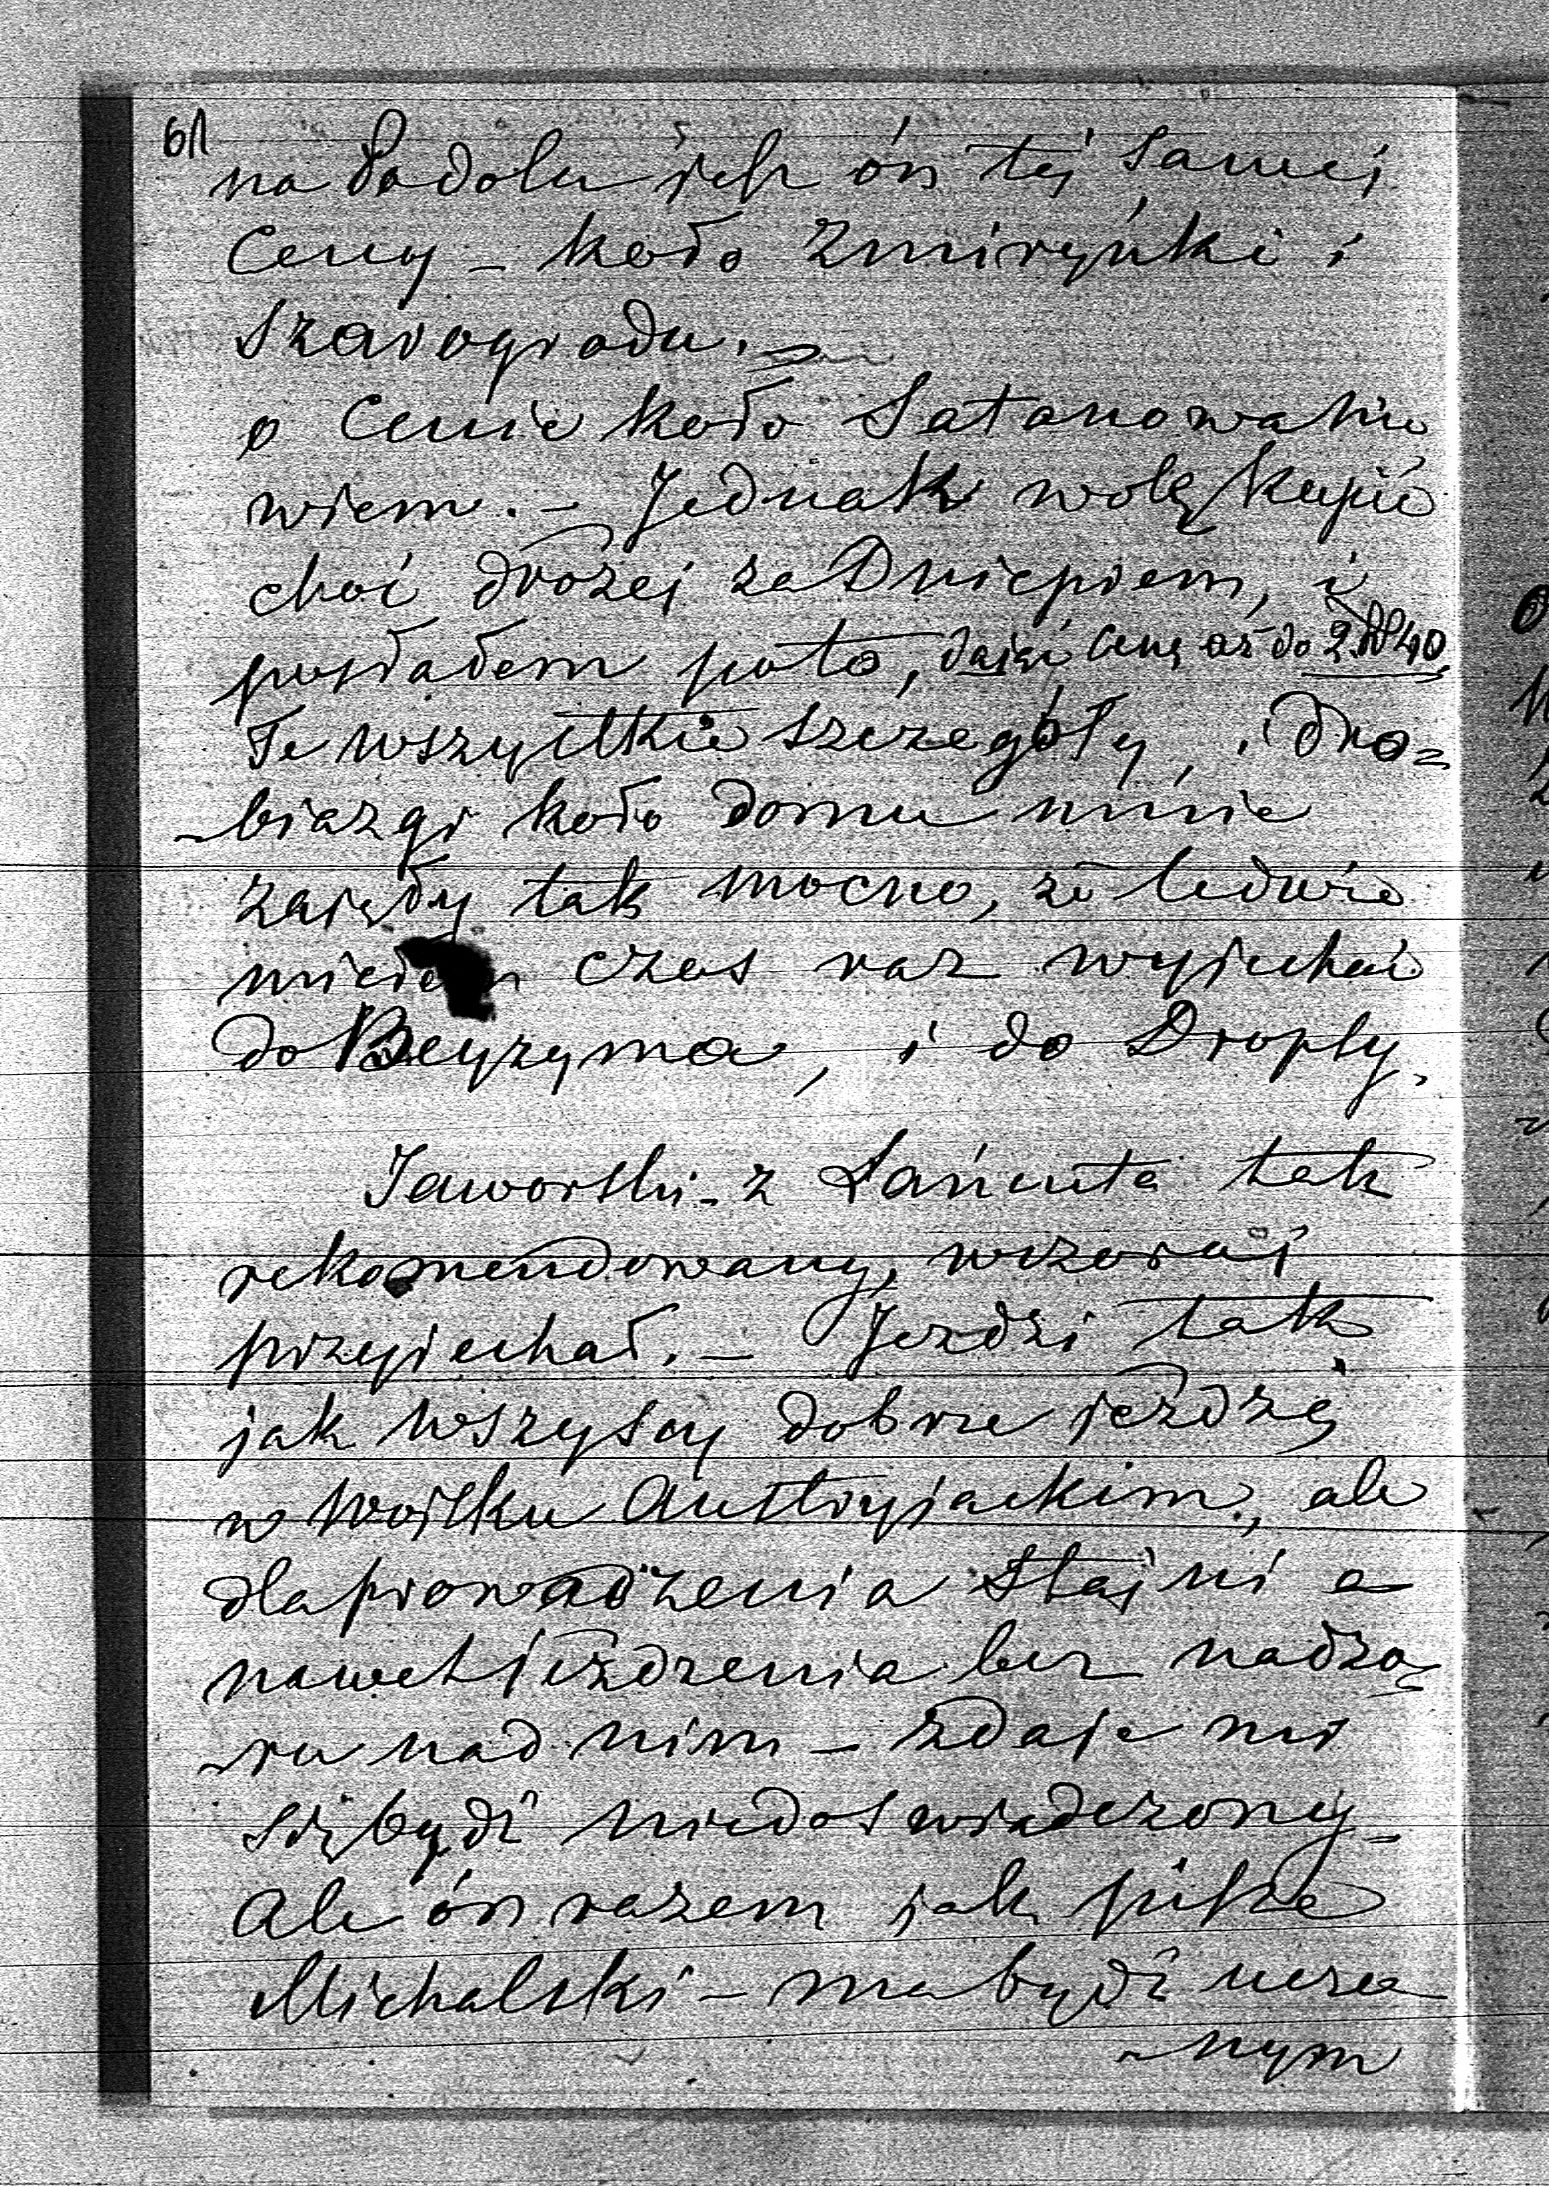 61
na Podolu jest ón tej samej
Ceny – koło Zmirynki i
Szarogrodu. –
o Cenie koło Satanowa nie
wiem. – Jednak wolę kupić
choć drożej za Dnieprem, i
posłałem po to, dając Cenę aż do 2. R 40
Te wszystkie szczegóły, i dro=
-biazgi koło domu mnie
zajęły tak mocno, że ledwie
miałem czas raz wyjechać
do Beyzyma, i do Dropty.
Jaworski – z Łańcuta tak
rekomendowany, wczoraj
przyjechał. – Jezdzi tak
jak wszyscy dobrze jezdzą
w Wojsku Austryjackim, ale
dla prowadzenia Stajni a
nawet jezdzenia bez nadzo=
-ru nad nim – zdaje mi
się bydź niedoswiadczony –
Ale ón razem jak pisze
Michalski – ma bydź ucza
-nym